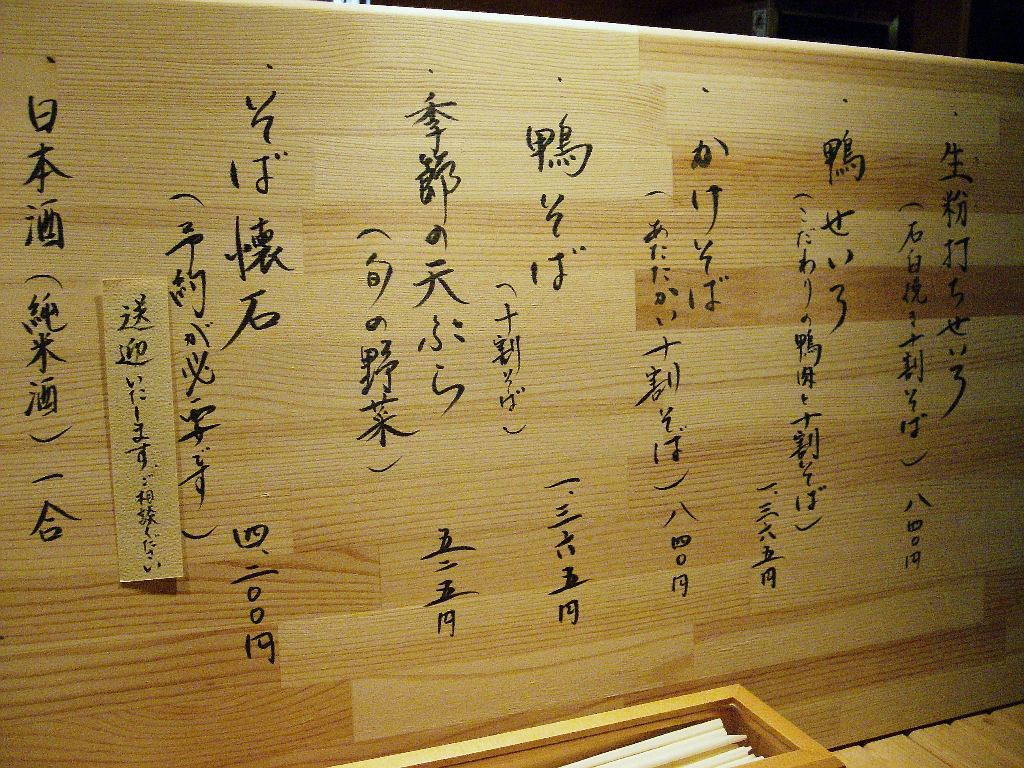 ・生粉打ちせいろ
(石臼挽き十割そば) 八四〇円
・鴨せいろ
(こだわりの鴨肉と十割そば)
一、三六五円
・かけそば
(あたたかい十割そば) 八四〇円
・鴨そば
(十割そば)
一、三六五円
・季節の天ぷら
(旬の野菜)
五二五円
・そば懐石
(予約が必要です)
四、二〇〇円
送迎いたします。ご相談ください
・日本酒(純米酒)一合